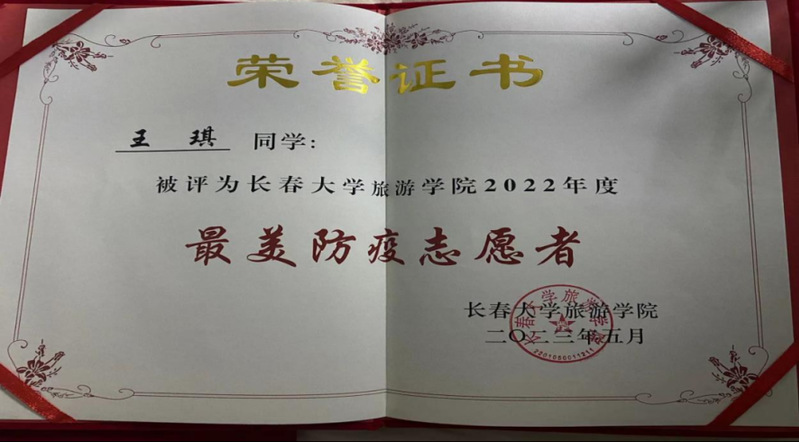 荣誉证书
王 琪 同学:
被评为长春大学旅游学院2022年度
最美防疫志愿者
长春大学旅游学院
二〇二三年五月
长春大学旅游学院